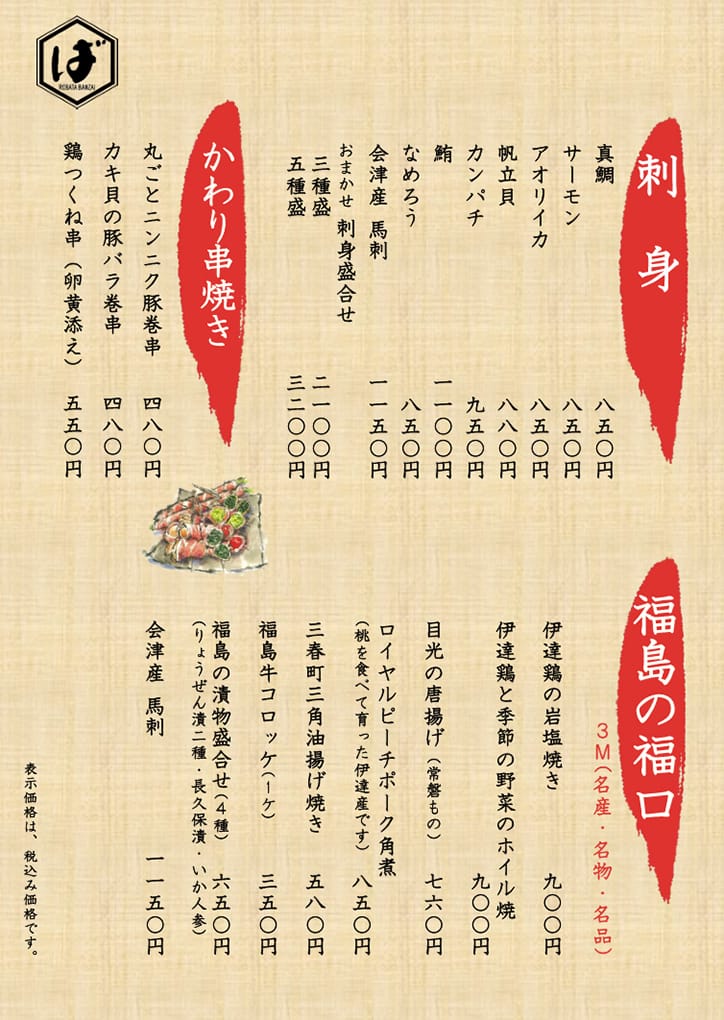 ば
ROBATA BANZAI
刺身
真鯛 八五〇円
サーモン 八五〇円
アオリイカ 八五〇円
帆立貝 八八〇円
カンパチ 九五〇円
鮪 一一〇〇円
なめろう 八五〇円
会津産 馬刺 一一五〇円
おまかせ 刺身盛合せ
三種盛 二一〇〇円
五種盛 三二〇〇円
かわり串焼き
丸ごとニンニク豚巻串 四八〇円
カキ貝の豚バラ巻串 四八〇円
鶏つくね串（卵黄添え） 五五〇円
福島の福口
3M（名産・名物・名品）
伊達鶏の岩塩焼き 九〇〇円
伊達鶏と季節の野菜のホイル焼 九〇〇円
目光の唐揚げ（常磐もの） 七六〇円
ロイヤルピーチポーク角煮
（桃を食べて育った伊達産です） 八五〇円
三春町三角油揚げ焼き 五八〇円
福島牛コロッケ（一ヶ） 三五〇円
福島の漬物盛合せ（4種） 六五〇円
（りょうぜん漬二種・長久保漬・いか人参）
会津産 馬刺 一一五〇円
表示価格は、税込み価格です。